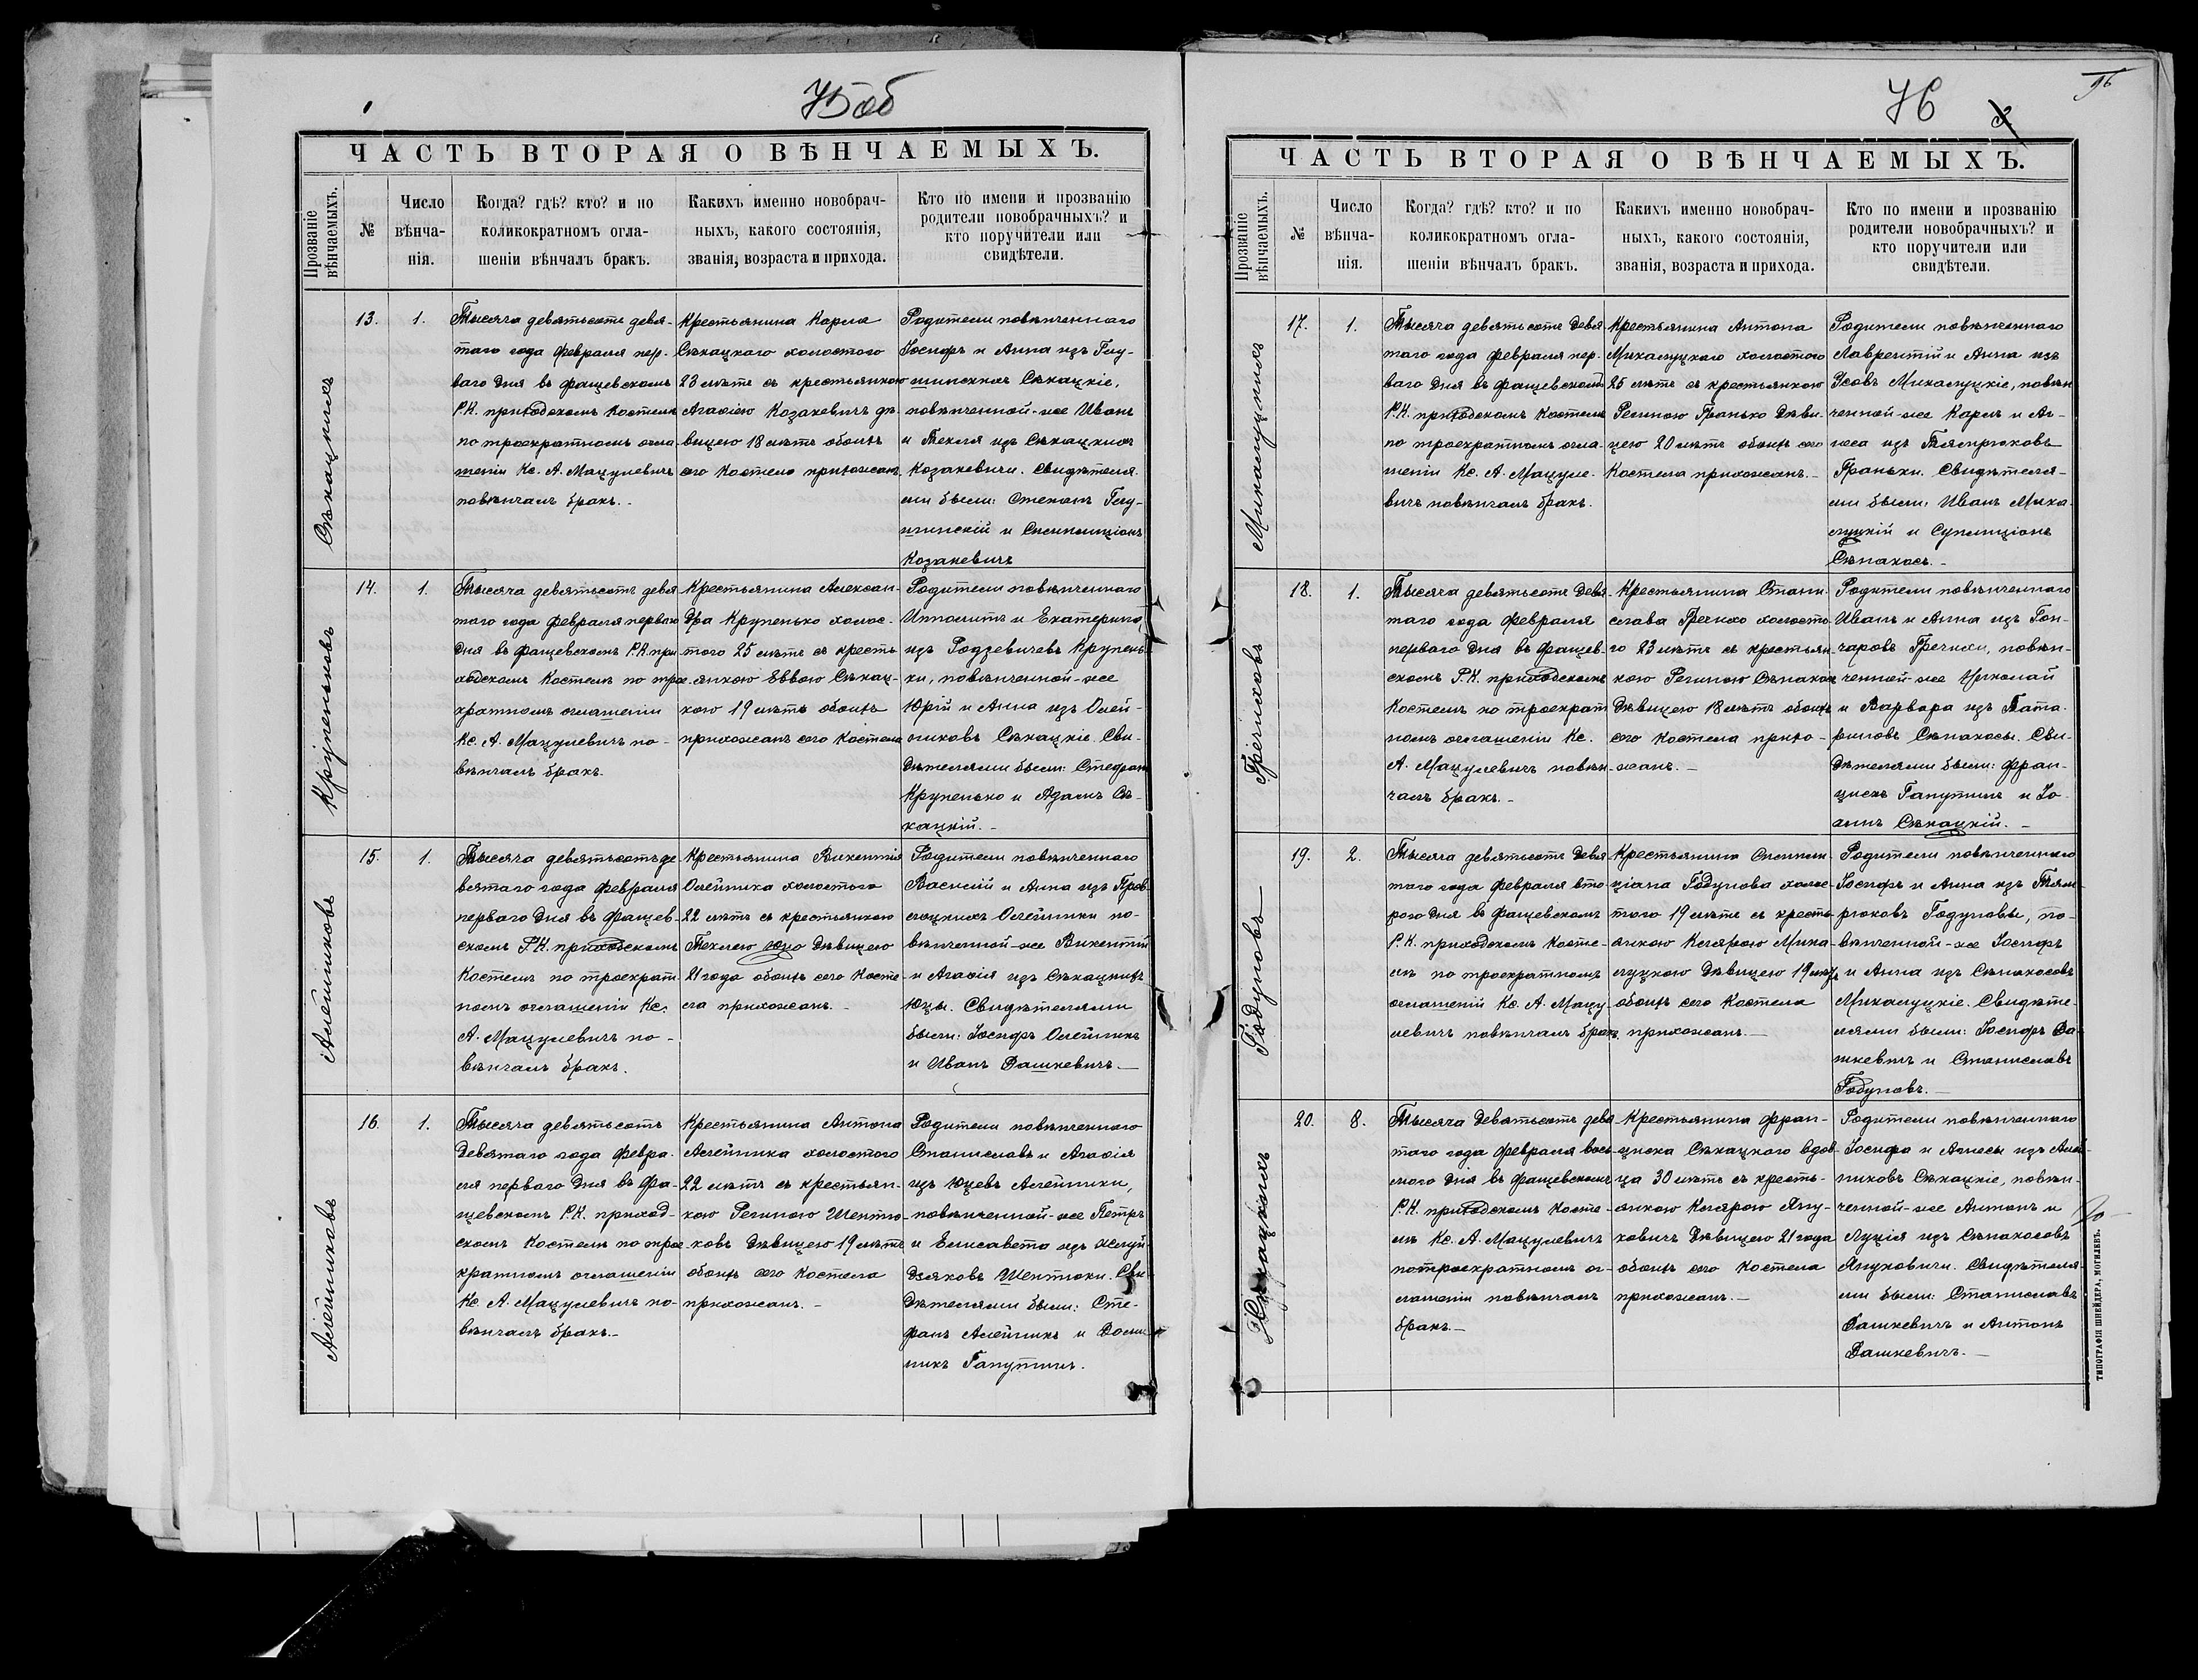 75об
ЧАСТЬ ВТОРАЯ О ВѢНЧАЕМЫХЪ.
Прозваніе вѣнчаемыхъ.
№
Число
вѣнча-
нія.
Когда? гдѣ? кто? и по
коликократномъ огла-
шеніи вѣнчалъ бракъ.
Какихъ именно новобрач-
ныхъ, какого состоянія,
званія, возраста и прихода.
Кто по имени и прозванію
родители новобрачныхъ? и
кто поручители или
свидѣтели.
Сѣкацкихъ
13.
1.
Тысяча девятьсотъ девя-
таго года февраля пер-
ваго дня въ фащевскомъ
Р.К. приходскомъ костелѣ
по троекратномъ огла-
шеніи Кс. А. Мацулевичъ
повѣнчалъ бракъ.
Крестьянина Карла
Сѣкацкаго холостого
23 лѣтъ съ крестьянкою
Агафіею Козакевичъ дѣ-
вицею 18 лѣтъ обоихъ
сего костела прихожанъ.
Родители повѣнченнаго
Іосифъ и Анна изъ Глу-
шинскихъ Сѣкацкіе,
повѣнченной-же Иванъ
и Текля изъ Сѣкацкихъ
Козакевичи. Свидѣтеля-
ми были: Степанъ Глу-
шинскій и Симплиціанъ
Козакевичъ
Крупеньковъ
14.
1.
Тысяча девятьсотъ девя
таго года февраля перваго
дня въ фащевскомъ Р.К. при
ходскомъ костелѣ по трое-
кратномъ оглашеніи
Кс. А. Мацулевичъ по-
вѣнчалъ бракъ.
Крестьянина Алексан-
дра Крупенько холос-
того 25 лѣтъ съ кресть
янкою Еввою Сѣкац-
кою 19 лѣтъ обоихъ
прихожанъ сего костела
Родители повѣнченнаго
Ипполитъ и Екатерина
изъ Родзевичевъ Крупень
ки, повѣнченной-же
Юрій и Анна изъ Олей-
никовъ Сѣкацкіе. Сви-
дѣтелями были: Стефанъ
Крупенько и Адамъ Сѣ-
кацкій.
Алейниковъ
15.
1.
Тысяча девятьсотъ де
вятаго года февраля
перваго дня въ фащев-
скомъ Р.К. приходскомъ
костелѣ по троекрат-
номъ оглашеніи Кс.
А. Мацулевичъ по-
вѣнчалъ бракъ.
Крестьянина Викентія
Олейника холостого
22 лѣтъ съ крестьянкою
Теклею Юцо дѣвицею
21 года обоихъ сего косте-
ла прихожанъ.
Родители повѣнченнаго
Василій и Анна изъ
Олейники по-
вѣнченной-же Викентій
и Агафія изъ Сѣкацкихъ
Юцы. Свидѣтелями
были: Іосифъ Олейникъ
и Иванъ Дашкевичъ.
Алейниковъ
16.
1.
Тысяча девятьсотъ
девятаго года февра-
ля перваго дня въ фа-
щевскомъ Р.К. приход-
скомъ костелѣ по трое
кратномъ оглашеніи
Кс. А. Мацулевичъ по-
вѣнчалъ бракъ.
Крестьянина Антона
Алейника холостого
22 лѣтъ съ крестьян-
кою Региною Шентю-
ковъ дѣвицею 19 лѣтъ
обоихъ сего костела
прихожанъ.
Родители повѣнченнаго
Станиславъ и Агафія
изъ Юцевъ Алейники,
повѣнченной-же Петръ
и Елисавета изъ
Шентюки. Сви-
дѣтелями были: Сте-
фанъ Алейникъ и Доми
никъ Гапутинъ.
76
3
96
ЧАСТЬ ВТОРАЯ О ВѢНЧАЕМЫХЪ.
Прозваніе вѣнчаемыхъ.
№
Число
вѣнча-
нія.
Когда? гдѣ? кто? и по
коликократномъ огла-
шеніи вѣнчалъ бракъ.
Какихъ именно новобрач-
ныхъ, какого состоянія,
званія, возраста и прихода.
Кто по имени и прозванію
родители новобрачныхъ? и
кто поручители или
свидѣтели.
Михалуцкихъ
17.
1.
Тысяча девятьсотъ девя
таго года февраля пер-
ваго дня въ фащевскомъ
Р.К. приходскомъ костелѣ
по троекратномъ огла-
шеніи Кс. А. Мацуле-
вичъ повѣнчалъ бракъ.
Крестьянина Антона
Михалуцкаго холостого
25 лѣтъ съ крестьянкою
Региною Гранько дѣви-
цею 20 лѣтъ обоихъ сего
костела прихожанъ.
Родители повѣнченнаго
Лаврентій и Анна изъ
Усовъ Михалуцкіе, повѣн
ченной-же Карлъ и Аг-
неса изъ Тляпрюковъ
Граньки. Свидѣтеля-
ми были: Иванъ Миха-
луцкій и Суплиціанъ
Сѣпакосъ.
Гречиховъ
18.
1.
Тысяча девятьсотъ девя-
таго года февраля
перваго дня въ фащев-
скомъ Р.К. приходскомъ
костелѣ по троекрат
номъ оглашеніи Кс.
А. Мацулевичъ повѣн-
чалъ бракъ.
Крестьянина Стани-
слава Гречихо холосто-
го 23 лѣтъ съ крестьян-
кою Региною Сѣпакосъ
дѣвицею 18 лѣтъ обоихъ
сего костела прихо-
жанъ.
Родители повѣнченнаго
Иванъ и Анна изъ Гон-
чаровъ Гречихи, повѣн-
ченной-же Николай
и Варвара изъ Тата-
риновъ Сѣпакосы. Сви-
дѣтелями были: Фран-
цискъ Гапутинъ и Іо-
аннъ Сѣкацкій.
Годуновъ
19.
2.
Тысяча девятьсотъ девя
таго года февраля вто-
рого дня въ фащевскомъ
Р.К. приходскомъ косте-
лѣ по троекратномъ
оглашеній Кс. А. Мацу-
левичъ повѣнчалъ бракъ.
Крестьянина Симпли-
ціана Годунова холос-
того 19 лѣтъ съ кресть-
янкою Клярою Миха-
луцкою дѣвицею 19 лѣтъ
обоихъ сего костела
прихожанъ.
Родители повѣнченнаго
Іосифъ и Анна изъ Тляп-
рюковъ Годуновы, по-
вѣнченной-же Іосифъ
и Анна изъ Сѣпакосовъ
Михалуцкіе. Свидѣте-
лями были: Іосифъ Да-
шкевичъ и Станиславъ
Годуновъ.
Сѣкацкихъ
20.
8.
Тысяча девятьсотъ девя
таго года февраля вось-
мого дня въ фащевскомъ
Р.К. приходскомъ косте-
лѣ Кс. А. Мацулевичъ
по троекратномъ ог-
лашеніи повѣнчалъ
бракъ.
Крестьянина Фран-
циска Сѣкацкаго вдов-
ца 30 лѣтъ съ кресть-
янкою Клярою Яну-
ковичъ дѣвицею 21 года
обоихъ сего костела
прихожанъ.
Родители повѣнченнаго
Іосифа и Агнесы изъ Алей-
никовъ Сѣкацкіе, повѣн-
ченной-же Антонъ и
Луція изъ Сѣпакосовъ
Януковичи. Свидѣтеля-
ми были: Станиславъ
Дашкевичъ и Антонъ
Дашкевичъ.
ТИПОГРАФІЯ ШНЕЙДЕРА, МОГИЛЕВЪ.